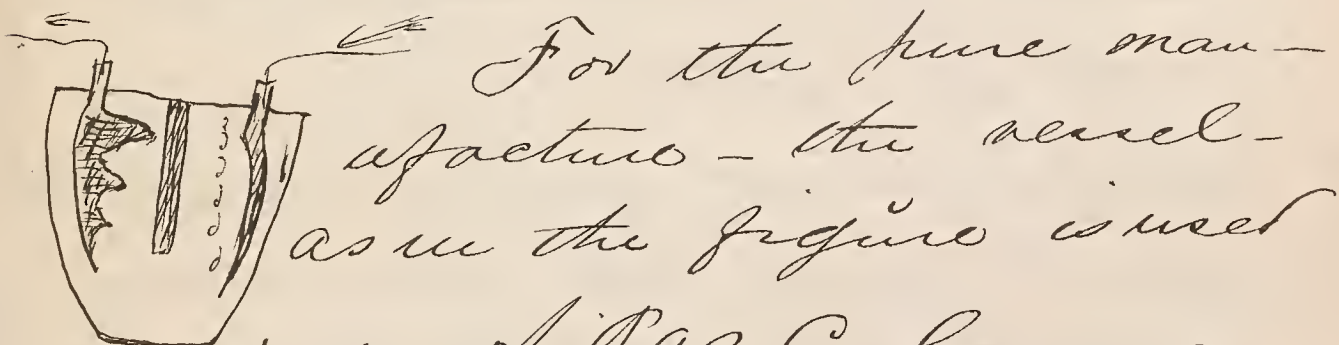 For the pure man-
ufacture - the vessel -
as in the figure is used